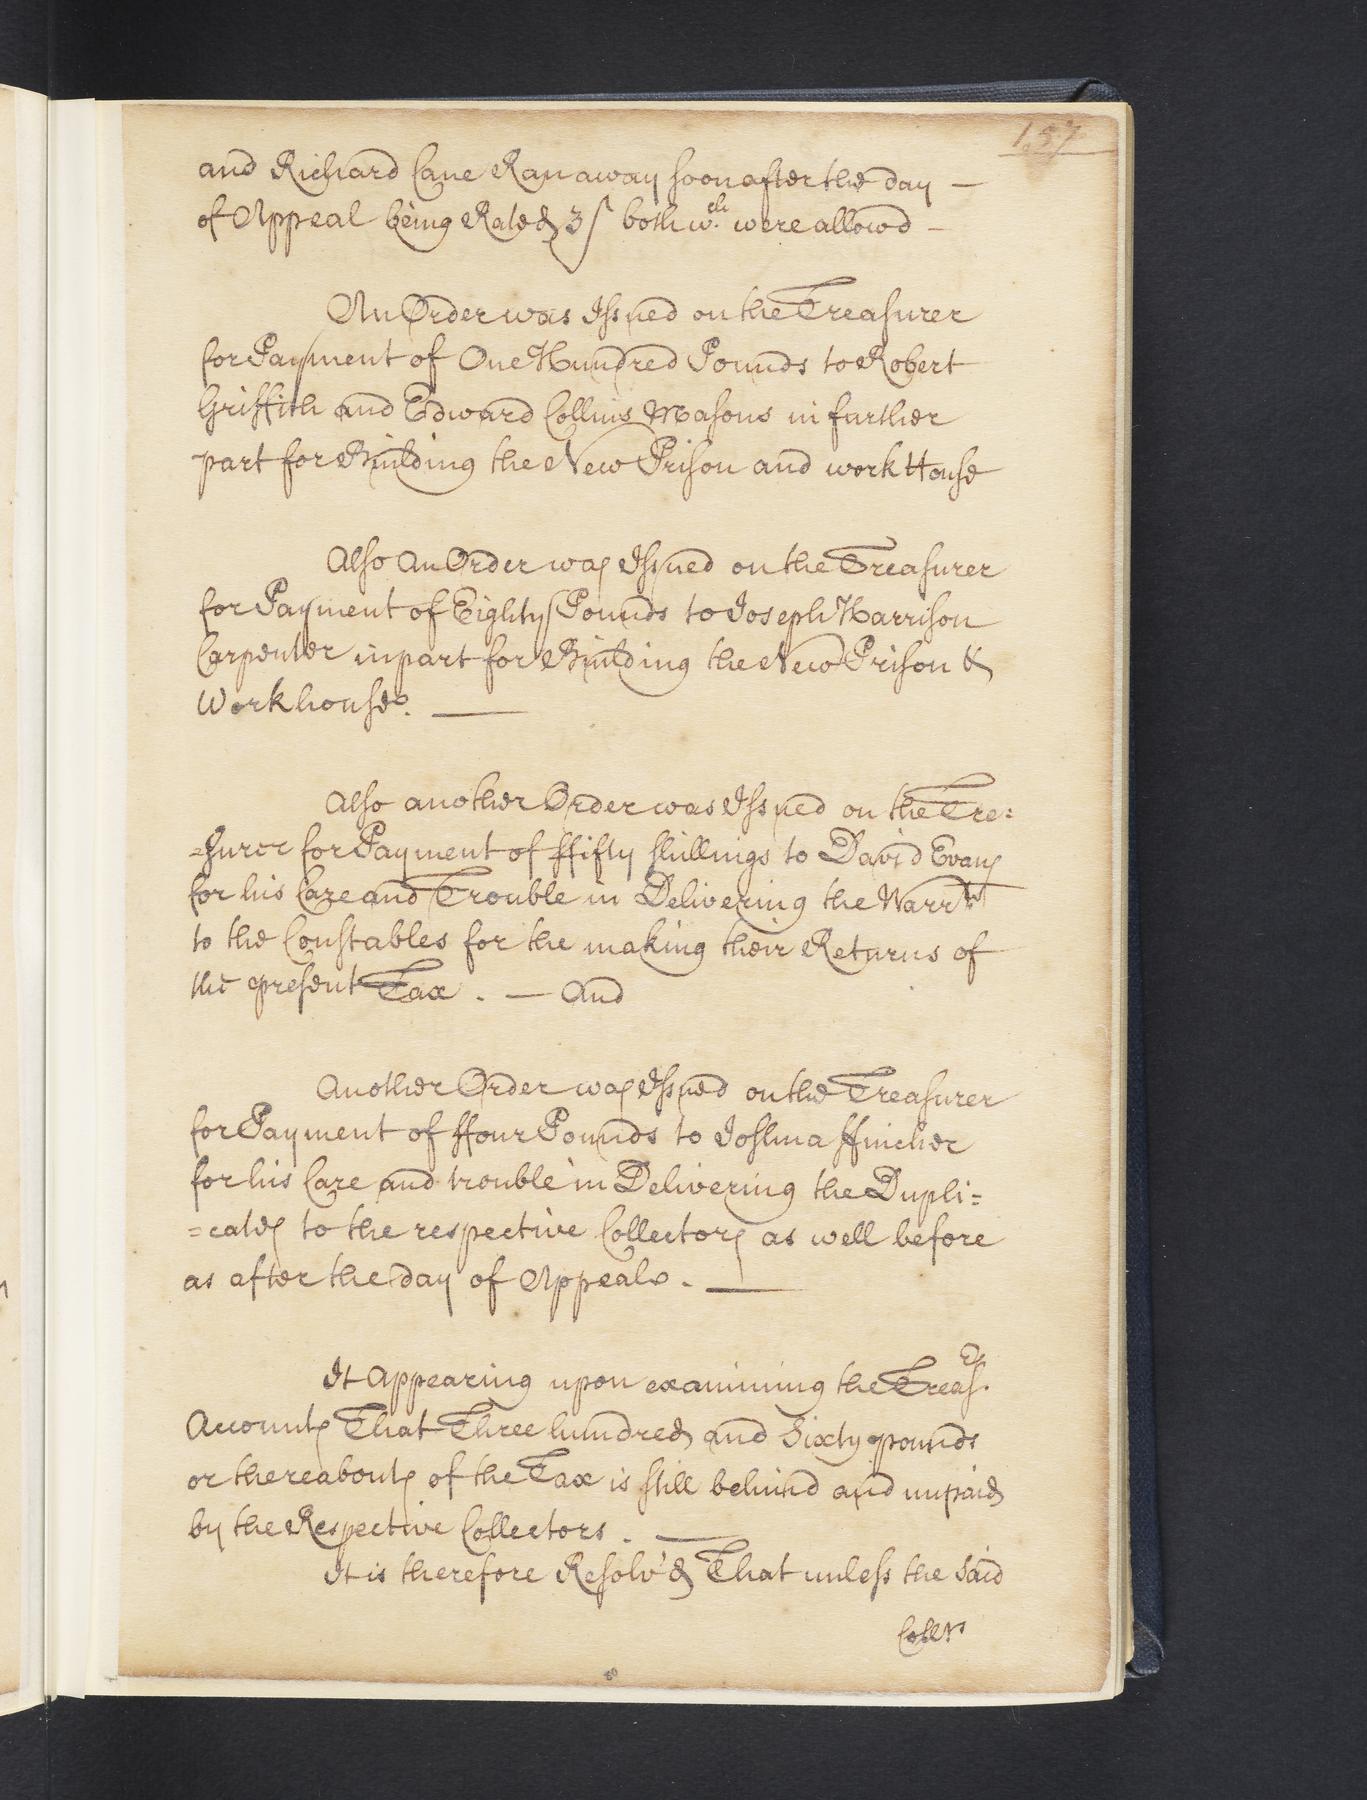 157
and Richard Cane Ran away soon after the day —
of Appeal being Rated 3s both wch. were allowd —
An Order was Issued on the Treasurer
for Payment of One Hundred Pounds to Robert
Griffith and Edward Collins Masons in further
part for Building the New Prison and work House
Also An Order was Issued on the Treasurer
for Payment of Eighty Pounds to Joseph Harrison
Carpenter in part for Building the New Prison &
Workhouse. —
Also another Order was Issued on the Trea=
=surer for Payment of ffifty shillings to David Evans
for his Care and Trouble in Delivering the Warrts
to the Constables for the making their Returns of
the present Tax. — And
Another Order was Issued on the Treasurer
for Payment of ffour Pounds to Joshua ffincher
for his Care and trouble in Delivering the Dupli=
=cates to the respective Collectors as well before
as after the day of Appeale. —
It Appearing upon examining the Treasrs.
Accounts That Three hundred and Sixty pounds
or thereabouts of the Tax is still behind and unpaid
by the Respective Collectors. —
It is therefore Resolv'd That unless the said
Collrs